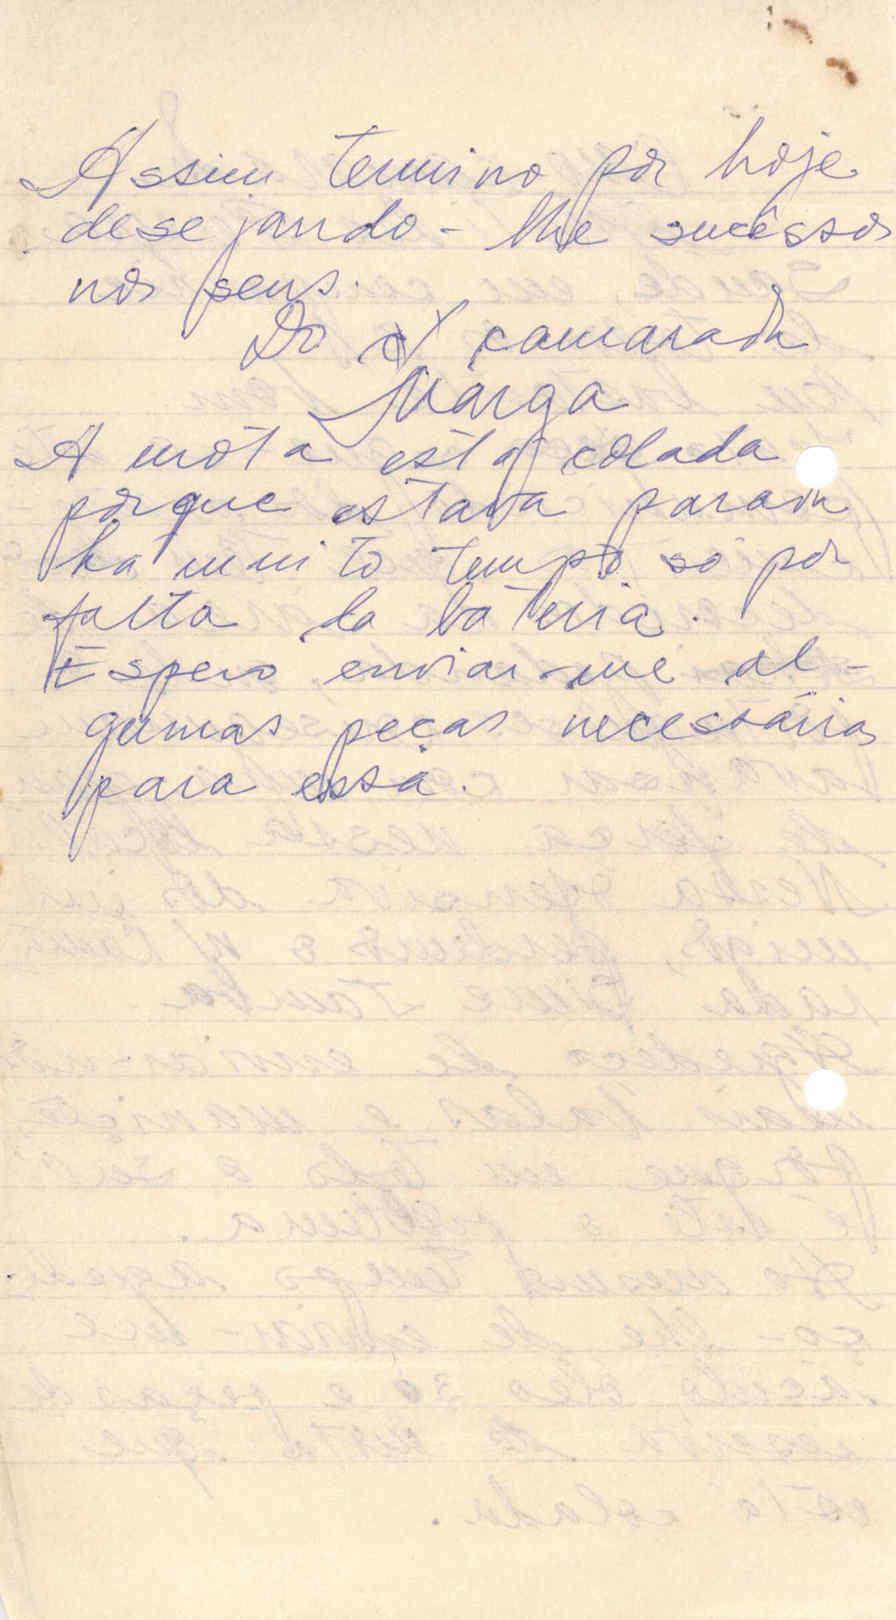 Assim termino por hoje
desejando-lhe sucêssos
nos seus.
Do camarada
Marga
A mota está colada
porque estava parada
há muito tempo só por
falta da bateria.
Espero enviar-me al-
gumas peças necessárias
para essa.